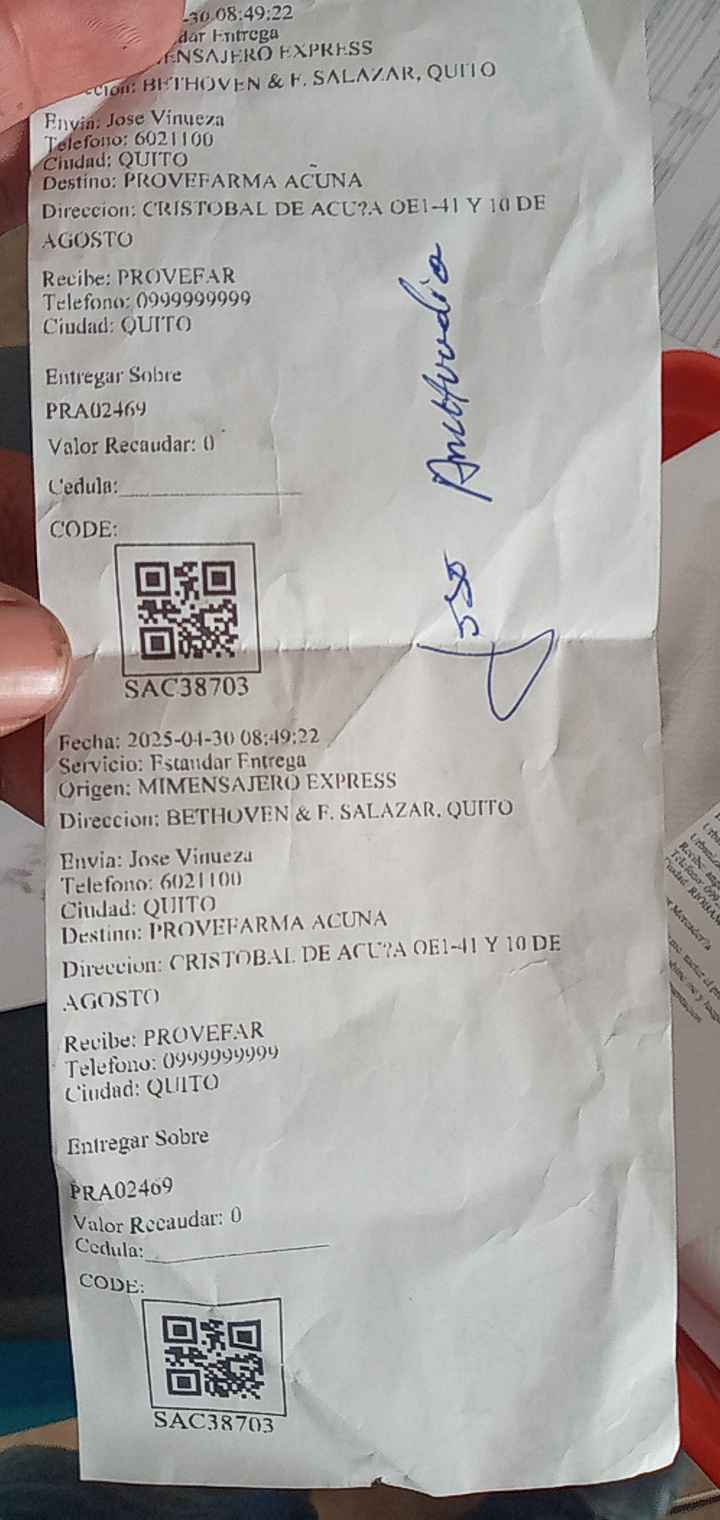 -30 08:49:22
dar Entrega
MENSAJERO EXPRESS
ccion: BETHOVEN & F. SALAZAR, QUITO
Envia: Jose Vinueza
Telefono: 6021100
Ciudad: QUITO
Destino: PROVEFARMA ACUÑA
Direccion: CRISTOBAL DE ACU?A OE1-41 Y 10 DE
AGOSTO
Recibe: PROVEFAR
Telefono: 0999999999
Ciudad: QUITO
Entregar Sobre
PRA02469
Valor Recaudar: 0
Cedula:
CODE:
SAC38703
Fecha: 2025-04-30 08:49:22
Servicio: Estandar Entrega
Origen: MIMENSAJERO EXPRESS
Direccion: BETHOVEN & F. SALAZAR, QUITO
Envia: Jose Vinueza
Telefono: 6021100
Ciudad: QUITO
Destino: PROVEFARMA ACUNA
Direccion: CRISTOBAL DE ACU?A OE1-41 Y 10 DE
AGOSTO
Recibe: PROVEFAR
Telefono: 0999999999
Ciudad: QUITO
Entregar Sobre
PRA02469
Valor Recaudar: 0
Cedula:
CODE:
SAC38703